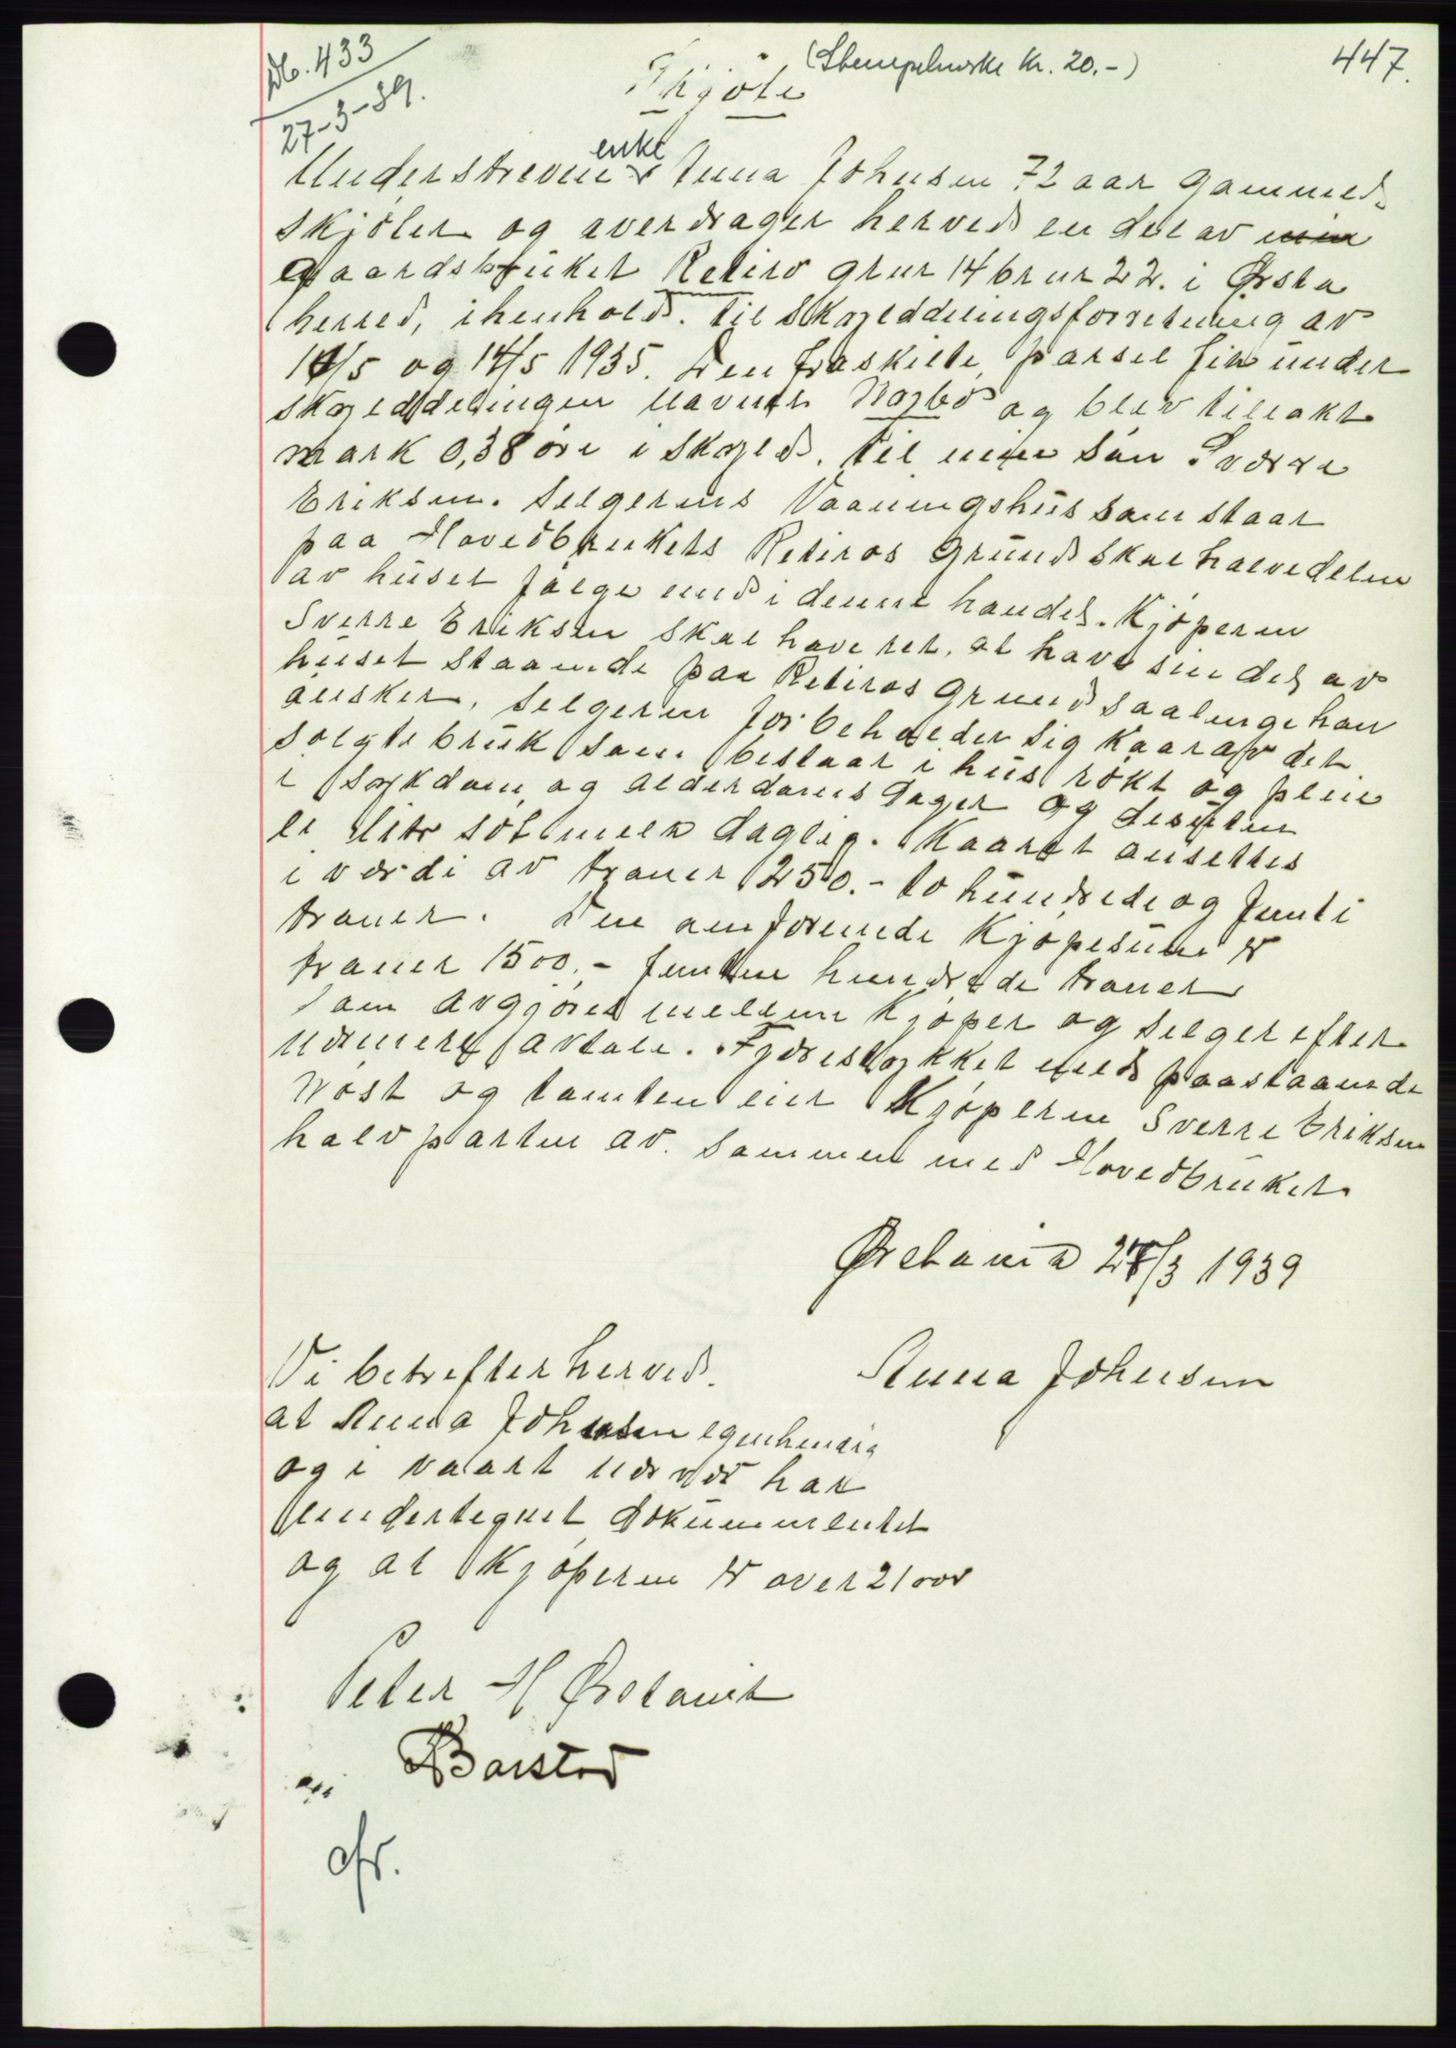 Db. 433
27-3-39.
(Stempelmerke kr. 20.-)
447.
Skjöte
enke
Underskreven Anna Johnsen 72 aar gammel
skjöter og overdrager herved en del av min
gaardsbruket Retiro grnr 14 brnr 22. i Ørsta
herred, ihenhold. til skylddelingsforretning av
14/5 og 14/5 1935. Den fraskilte parsel fik under
skylddelingen navnet Nybö og blev tillakt
mark 0,38 öre i skyld. til min sön Sverre
Eriksen. Selgerens Vaaningshus som staar
paa Hovedbrukets Retiros grund skal halvedelen
av huset fölge med i denne handel. Kjöperen
Sverre Eriksen skal have ret, at have sin del av
huset staaende paa Retiros grund saalenge han
önsker. Selgeren forbeholder sig kaar av det
solgte bruk som bestaar i hus rökt og pleie
i sykdom og alderdoms dager og desuten
ei liter söt melk daglig. Kaaret ansettes
i verdi av kroner 250.- to hundrede og femti
kroner. Den omforenede Kjöpesum er
kroner 1500.- femten hundrede kroner
som avgjöres mellem Kjöper og Selger efter
nærmere avtale. Fjærestykket med paastaaende
Nöst og tomten eier Kjöperen Sverre Eriksen
halvparten av. sammen med Hovedbruket.
Ørstavik 27/3 1939
Vi betrefter herved.
Anna Johnsen
at Anna Johnsen egenhendig
og i vaart nærvær har
undertegnet dokummentet
og at Kjöperen er over 21 aar
Peter H Ørstavik
Barstad
cfr.